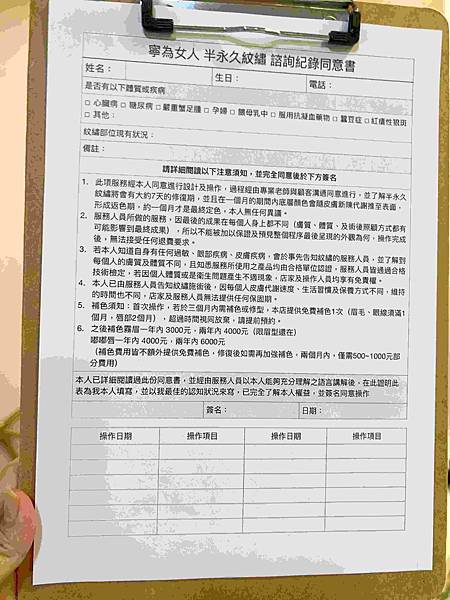 寧為女人 半永久紋繡 諮詢紀錄同意書
姓名： 生日： 電話：
是否有以下體質或疾病
□ 心臟病 □ 糖尿病 □ 嚴重蟹足腫 □ 孕婦 □ 餵母乳中 □ 服用抗凝血藥物 □ 蠶豆症 □ 紅斑性狼瘡
□ 其他：
紋繡部位現有狀況：
備註：
請詳細閱讀以下注意須知，並完全同意後於下方簽名
1. 此項服務經本人同意進行設計及操作，過程經由專業老師與顧客溝通同意進行，並了解半永久
紋繡將會有大約7天的修復期，並且在一個月的期間內底層顏色會隨皮膚新陳代謝推至表面，
形成返色期，約一個月才是最終定色，本人無任何異議。
2. 服務人員所做的服務，因最後的成果在每個人身上都不同（膚質、體質、及術後照顧方式都有
可能影響到最終成果），所以不能被加以保證及預見整個程序最後呈現的外觀為何，操作完成
後，無法接受任何退費要求。
3. 若本人知道自身有任何過敏、眼部疾病、皮膚疾病，會於事先告知紋繡的服務人員，並了解到
每個人的膚質及體質不同，且知悉服務所使用之產品均由合格單位認證，服務人員皆通過合格
技術檢定，若因個人體質或是衛生問題產生不適現象，店家及操作人員均享有免責權。
4. 本人已由服務人員告知紋繡施術後，因每個人皮膚代謝速度、生活習慣及保養方式不同，維持
的時間也不同，店家及服務人員無法提供任何保固期。
5. 補色須知：首次操作，若於三個月內需補色或修型，本店提供免費補色1次（眉毛、眼線須滿1
個月，唇部2個月），超過時間視同放棄，請提前預約。
6. 之後補色霧眉一年內 3000元，兩年內 4000元（限眉型還在)
嘟嘟唇一年內 4000元，兩年內 6000元
（補色費用皆不額外提供免費補色，修復後如需再加強補色，兩個月內，僅需500-1000元部
分費用）
本人已詳細閱讀過此份同意書，並經由服務人員以本人能夠充分理解之語言講解後，在此證明此
表為我本人填寫，並以我最佳的認知狀況來寫，已完全了解本人權益，並簽名同意操作
簽名： 日期：
操作日期 操作項目 操作日期 操作項目